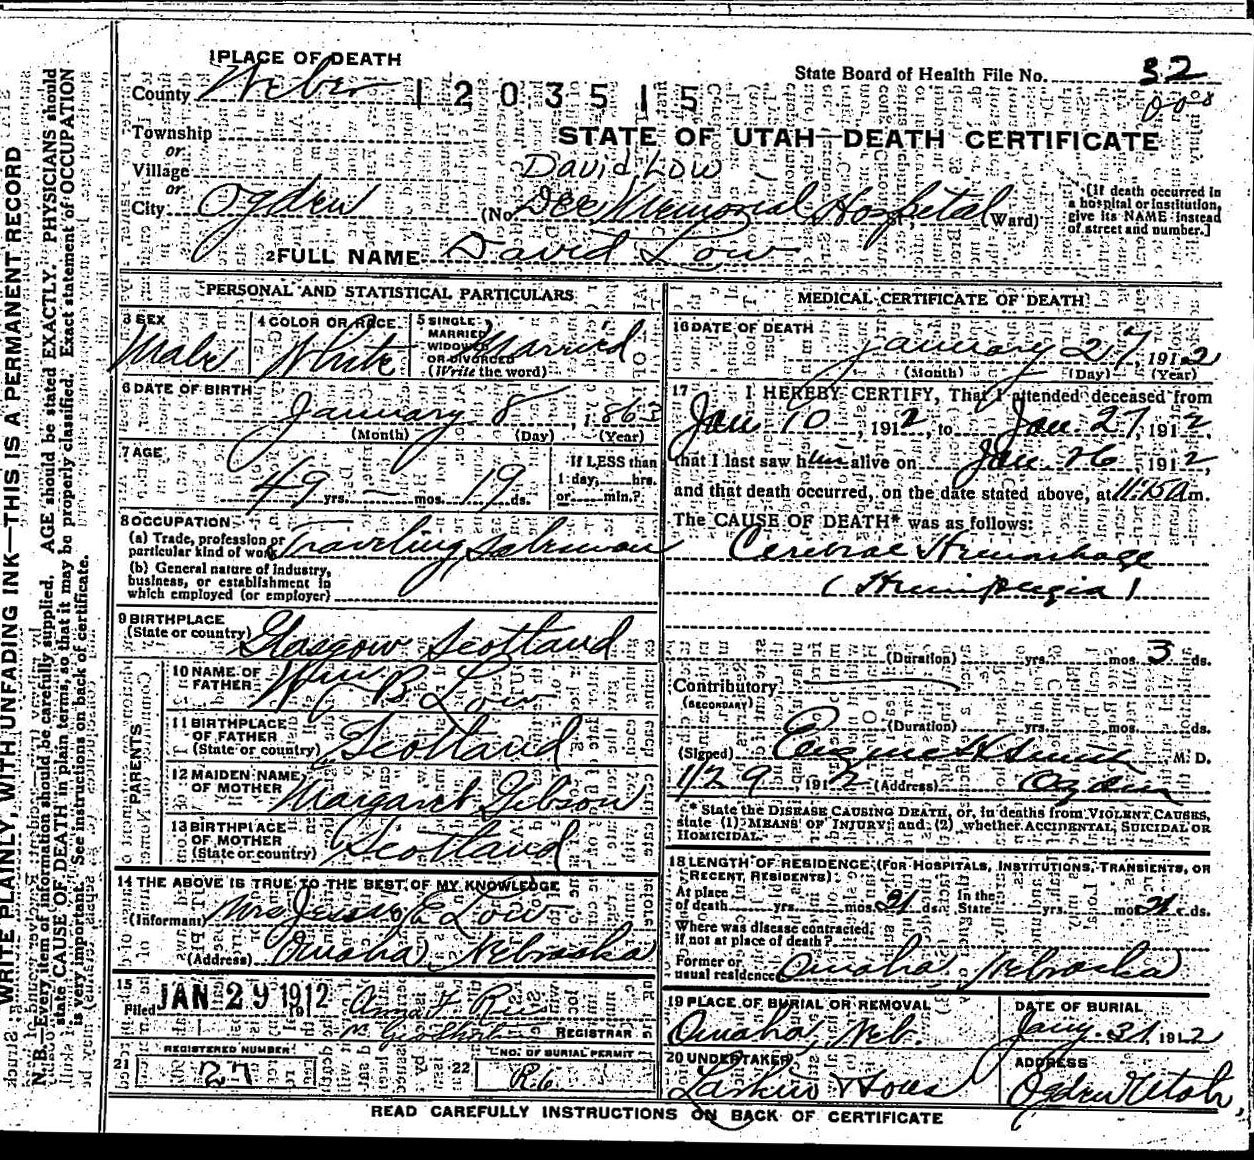 WRITE PLAINLY, WITH UNFADING INK—THIS IS A PERMANENT RECORD
N. B.—Every item of information should be carefully supplied. AGE should be stated EXACTLY. PHYSICIANS should
state CAUSE OF DEATH in plain terms, so that it may be properly classified. Exact statement of OCCUPATION
is very important. See instructions on back of certificate.
1 PLACE OF DEATH
State Board of Health File No. 32
County Weber 1203515
Township
STATE OF UTAH—DEATH CERTIFICATE
or
Village David Low
or
City Ogden (No. Dee Memorial Hospital Ward)
[If death occurred in
a hospital or institution,
give its NAME instead
of street and number.]
2 FULL NAME David Low
PERSONAL AND STATISTICAL PARTICULARS
3 SEX Male
4 COLOR OR RACE White
5 SINGLE
MARRIED
WIDOWED
OR DIVORCED
(Write the word)
Married
6 DATE OF BIRTH
January 8, 1863
(Month) (Day) (Year)
7 AGE
49 yrs. — mos. 19 ds.
If LESS than
1 day, hrs.
or min.?
8 OCCUPATION
(a) Trade, profession or
particular kind of work Traveling Salesman
(b) General nature of industry,
business, or establishment in
which employed (or employer)
9 BIRTHPLACE
(State or country) Glasgow Scotland
PARENTS
10 NAME OF
FATHER Wm B Low
11 BIRTHPLACE
OF FATHER
(State or country) Scotland
12 MAIDEN NAME
OF MOTHER Margaret Gibson
13 BIRTHPLACE
OF MOTHER
(State or country) Scotland
14 THE ABOVE IS TRUE TO THE BEST OF MY KNOWLEDGE
(Informant) Mrs Jessie E Low
(Address) Omaha Nebraska
15
Filed JAN 29 1912 191
REGISTRAR
21 REGISTERED NUMBER
27
22 NO. OF BURIAL PERMIT
R6
MEDICAL CERTIFICATE OF DEATH
16 DATE OF DEATH
January 27 1912
(Month) (Day) (Year)
17 I HEREBY CERTIFY, That I attended deceased from
Jan 10, 1912, to Jan. 27, 1912,
that I last saw him alive on Jan. 26 1912,
and that death occurred, on the date stated above, at 11:15 A m.
The CAUSE OF DEATH* was as follows:
Cerebral Hemorrhage
(Hemiplegia)
(Duration) yrs. mos. 3 ds.
Contributory
(SECONDARY)
(Duration) yrs. mos. ds.
(Signed) Eugene H Smith M. D.
1/29, 1912 (Address) Ogden
* State the DISEASE CAUSING DEATH, or, in deaths from VIOLENT CAUSES,
state (1) MEANS OF INJURY; and (2) whether ACCIDENTAL, SUICIDAL OR
HOMICIDAL.
18 LENGTH OF RESIDENCE (FOR HOSPITALS, INSTITUTIONS, TRANSIENTS, OR
RECENT RESIDENTS)
At place
of death yrs. mos. 21 ds.
In the
State yrs. mos. 21 ds.
Where was disease contracted,
If not at place of death?
Former or
usual residence Omaha, Nebraska
19 PLACE OF BURIAL OR REMOVAL
Omaha, Neb.
DATE OF BURIAL
Jany. 31, 1912
20 UNDERTAKER
Larkin & Sons
ADDRESS
Ogden Utah,
READ CAREFULLY INSTRUCTIONS ON BACK OF CERTIFICATE